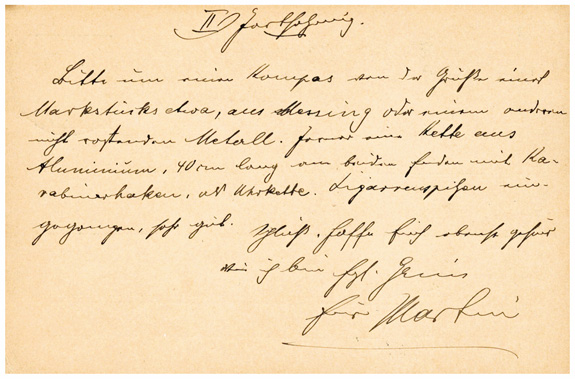 II Fortsetzung.
Bitte um einen Kompas von der Größe eines
Markstücks etwa, aus Messing oder einem anderen
nicht rostenden Metall. Ferner eine Kette aus
Aluminium, 40 cm lang an beiden Enden mit Ka-
rabinerhaken, als Uhrkette. Zigarrenspitzen ein-
gegangen, sehr gut. Schluß. Hoffe Euch ebenso gesund
wie ich bin hzl. Gruss
Eur Martin